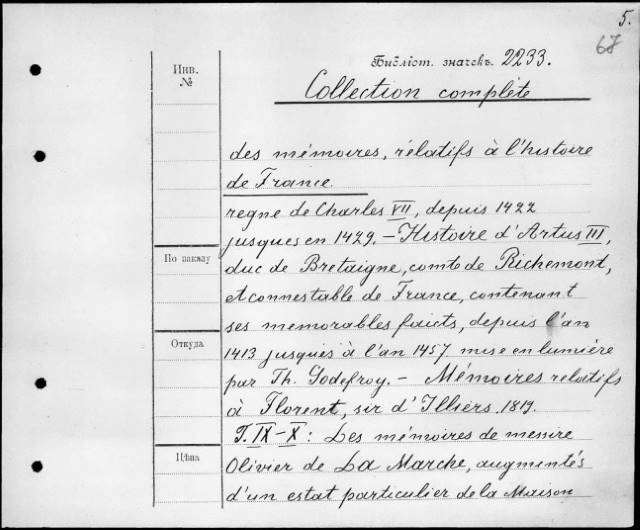 5.
68
Библіот. значекъ. 2233.
Инв.
№
Collection complète
des mémoires, rélatifs à l'histoire
de France.
regne de Charles VII, depuis 1422
jusques en 1429. – Histoire d'Artus III,
По заказу
duc de Bretaigne, comte de Richemont,
et connestable de France, contenant
ses memorables faicts, depuis l'an
Откуда
1413 jusques à l'an 1457 mise en lumière
par Th. Godefroy. – Mémoires relatifs
à Florent, sir d'Illiers. 1819.
T. IX–X: Les mémoires de messire
Цѣна
Olivier de La Marche, augmentés
d'un estat particulier de la Maison